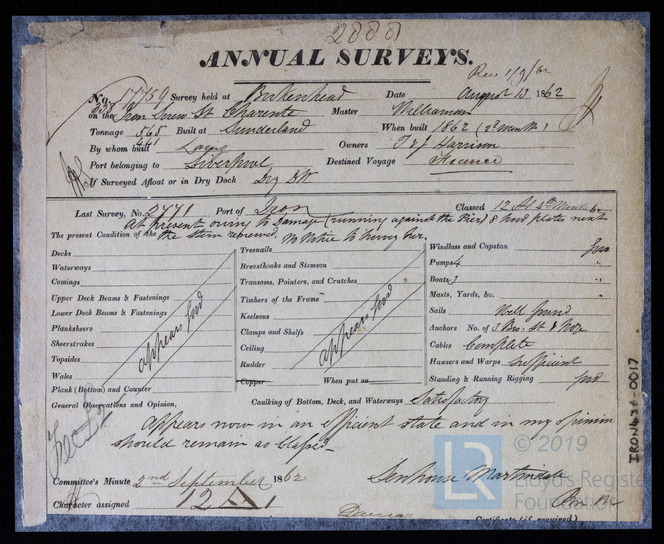 2880
ANNUAL SURVEYS.
Rec 1/9/62
No. 17759 Survey held at Birkenhead Date August 13 1862
on the Iron Screw St Charente Master Williamson
Tonnage 565 Built at Sunderland When built 1862 (2 Months)
441
By whom built Laing Owners T & J Harrison
Port belonging to Liverpool Destined Voyage France
If Surveyed Afloat or in Dry Dock Dry Dk
Last Survey, No. 2771 Port of Iron Classed 12 A1
At Present owing to Damage (running against the Pier) 8 bow plates next
The present Condition of the the Stem removed,
Decks
Waterways
Comings
Upper Deck Beams & Fastenings
Lower Deck Beams & Fastenings
Planksheers
Sheerstrakes
Topsides
Wales
Plank (Bottom) and Counter
appears good
Treenails
Breasthooks and Stemson
Transoms, Pointers, and Crutches
Timbers of the Frame
Keelsons
Clamps and Shelfs
Ceiling
Rudder
Copper When put on
appears good
Windlass and Capstan Good
Pumps 4 "
Boats 3 "
Masts, Yards, &c. "
Sails Well found
Anchors No. of 3 Bro. St &
Cables Complete
Hawsers and Warps sufficient
Standing & Running Rigging good
General Observations and Opinion, Caulking of Bottom, Deck, and Waterways Satisfactory
Appears now in an efficient state and in my opinion
should remain as Classed
Committee's Minute 2nd September 1862
Senhouse Martindale
Character assigned 12 A1
Certificate (if required)
IRON436-0017
© 2019
LR
Lloyd's Register
Foundation